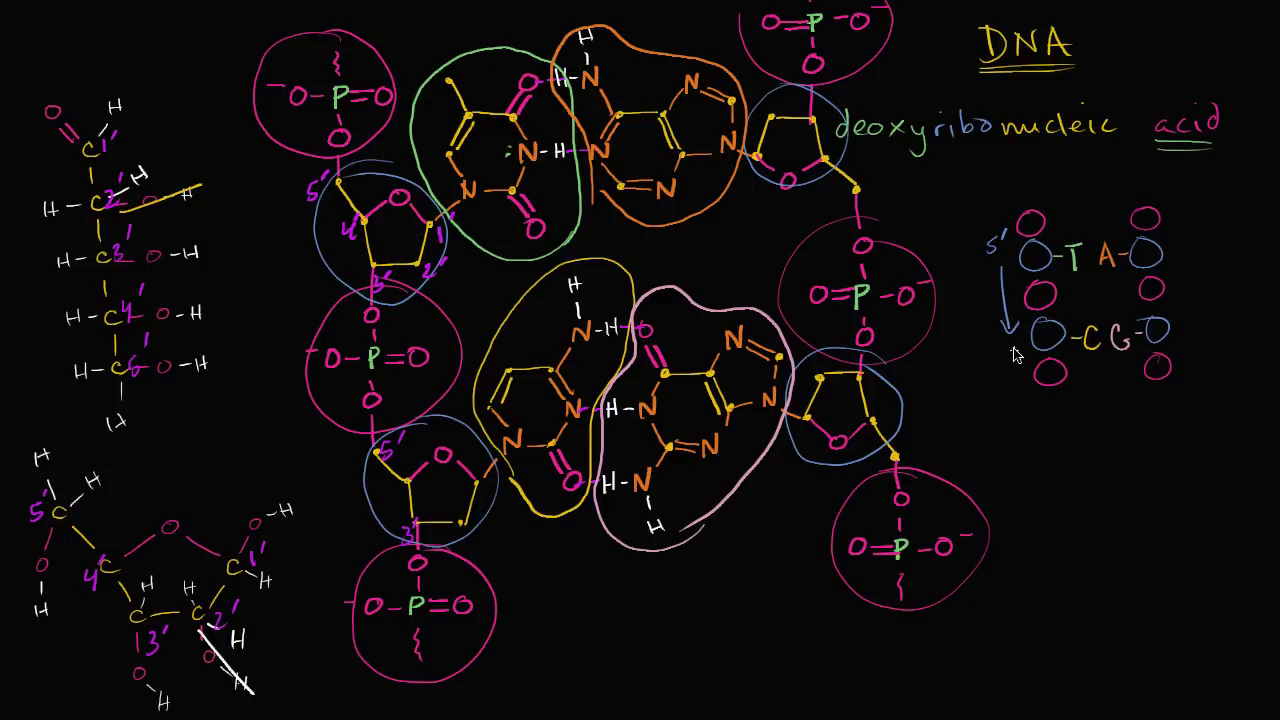 DNA
deoxyribonucleic acid
5'
T A
C G
O H
C 1'
H C 2' H O H
H- C 3' O -H
H- C 4' O -H
H- C 5' O -H
H
H
5' C H
O
H
O
O -H
4' C
C 1' H
H H
C C 2'
3' O H H
O H
-O- P =O
O
5'
O
4' 1'
3' 2'
O
-O- P =O
O
5'
O
3'
O
-O- P =O
O H
N- H -N
N
O
N
N
N
N
N
H
N- H -O
N- H -N
N
O H -N
H
N
N
N
O= P -O-
O
O
O
O= P -O-
O
O
O
O= P -O-